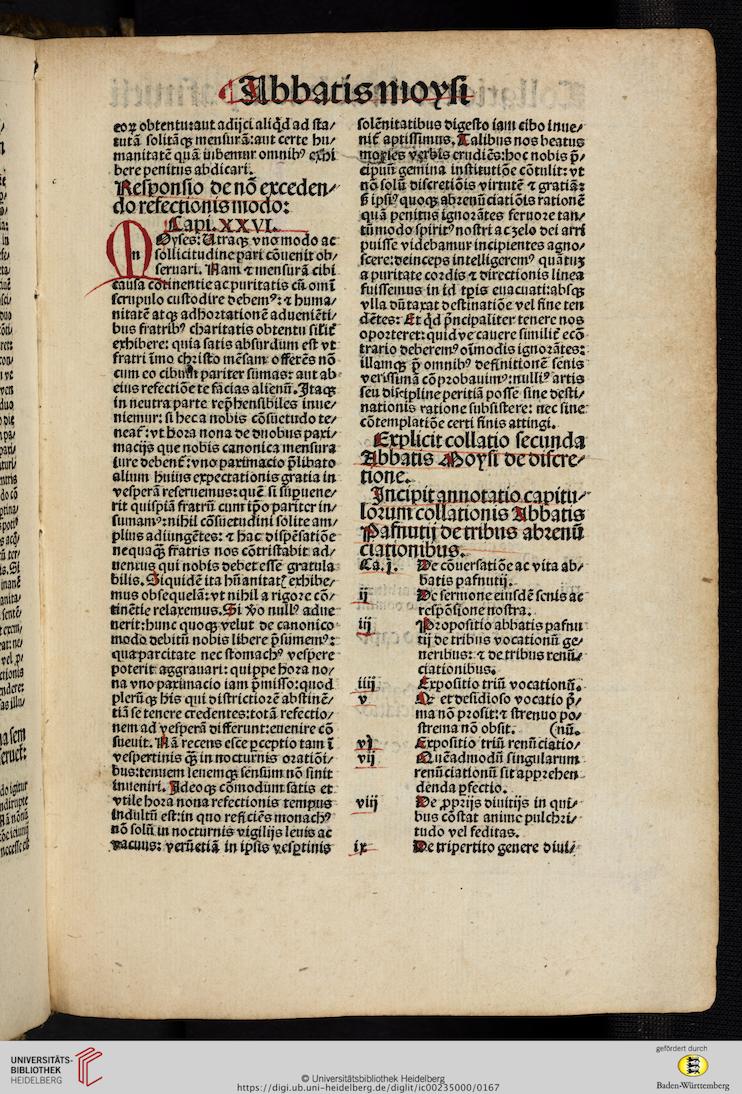 Abbatis moysi
eoꝝ obtentu: aut adijci aliq̇d ad sta⸗
tutā solitāqꝫ mensurā: aut certe hu⸗
manitatē quā iubemur omnibꝰ exhi
bere penitus abdicari.
Responsio de nō exceden⸗
do refectionis modo:
Capi. XXVI.
MOyses: Utraqꝫ vno modo ac
sollicitudine pari cōuenit ob⸗
seruari. Nam ⁊ mensurā cibi
causa cōtinentie ac puritatis cū omī
scrupulo custodire debemꝰ: ⁊ huma⸗
nitatē atqꝫ adhortationē adueniēti⸗
bus fratribꝰ charitatis obtentu silit̄
exhibere: quia satis absurdum est vt
fratri īmo christo mēsam offerēs nō
cum eo cibum pariter sumas: aut ab
eius refectiōe te facias alienū. Itaqꝫ
in neutra parte rep̄hensibiles inue⸗
niemur: si hec a nobis cōsuetudo te⸗
neat̄: vt hora nona de duobus paxi⸗
macijs que nobis canonica mensura
iure debent̄: vno paximacio p̄libato
alium huius expectationis gratia in
vesperā reseruemus: quē si sup̱uene⸗
rit quispiā fratrū cum ip̄o pariter in⸗
sumamꝰ: nihil cōsuetudini solite am⸗
plius adiūgētes: ⁊ hac dispēsatiōe
nequaqꝫ̄ fratris nos cōtristabit ad⸗
uentus qui nobis debet esse gratula
bilis. Siquidē ita hūanitatꝭ exhibe⸗
mus obsequelā: vt nihil a rigore cō⸗
tinētie relaxemus. Si v̊o nullꝰ adue
nerit: hunc quoqꝫ velut de canonico
modo debitū nobis libere p̄sumemꝰ:
qua parcitate nec stomachꝰ vespere
poterit aggrauari: quippe hora no⸗
na vno paximacio iam p̄misso: quod
plerūqꝫ his qui districtiorē abstinē⸗
tiā se tenere credentes: totā refectio⸗
nem ad vesperā differunt: euenire cō
sueuit. Nā recens esce p̱ceptio tam ī
vespertinis qꝫ̄ in nocturnis oratiōi⸗
bus: tenuem leuemqꝫ sensum nō sinit
inueniri. Ideoqꝫ cōmodum satis et
vtile hora nona refectionis tempus
indultū est: in quo reficiēs monachꝰ
nō solū in nocturnis vigilijs leuis ac
vacuus: verūetiā in ip̄sis vesp̱tinis
solēnitatibus digesto iam cibo inue⸗
nit̄ aptissimus. Talibus nos beatus
moyses verbis erudiēs: hoc nobis p̄⸗
cipuū gemina institutiōe cōtulit: vt
nō solū discretiōis virtutē ⁊ gratiā:
s̄ ipsiꝰ quoqꝫ abrenūciatiōis rationē
quā penitus ignorātes feruore tan⸗
tūmodo spiritꝰ nostri ac zelo dei arri
puisse videbamur incipientes agno⸗
scere: deinceps intelligeremꝰ quātuꝫ
a puritate cordis ⁊ directionis linea
fuissemus in id tp̄is euacuati: absqꝫ
vlla dūtaxat destinatiōe vel fine ten
dētes: Et q̇d p̄ncipaliter tenere nos
oporteret: quid ve cauere similit̄ ecō
trario deberemꝰ oīmodis ignorātes:
illamqꝫ p̄ omnibꝰ definitionē senis
verissimā cōprobauimꝰ: nulliꝰ artis
seu discipline peritiā posse sine desti⸗
nationis ratione subsistere: nec sine
cōtemplatiōe certi finis attingi.
Explicit collatio secunda
Abbatis Moysi de discre⸗
tione.
Incipit annotatio capitu⸗
lorum collationis Abbatis
Pafnutij de tribus abrenū
ciationibus.
Ca. j. De cōuersatiōe ac vita ab⸗
batis pafnutij.
ij De sermone eiusdē senis ac
respōsione nostra.
iij Propositio abbatis pafnu
tij de tribus vocationū ge⸗
neribus: ⁊ de tribus renū⸗
ciationibus.
iiij Expositio triū vocationū.
v Qꝫ et desidioso vocatio p̄⸗
ma nō prosit: ⁊ strenuo po⸗
strema nō obsit. (nū.
vj Expositio triū renūciatio⸗
vij Quēadmodū singularum
renūciationū sit apprehen
denda p̱fectio.
viij De ꝓprijs diuitijs in qui⸗
bus cōstat anime pulchri⸗
tudo vel feditas.
ix De tripertito genere diui⸗
UNIVERSITÄTS-
BIBLIOTHEK
HEIDELBERG
© Universitätsbibliothek Heidelberg
https://digi.ub.uni-heidelberg.de/diglit/ic00235000/0167
gefördert durch
Baden-Württemberg